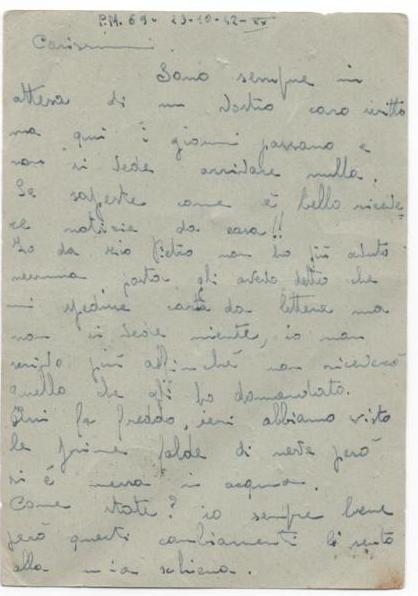 P.M. 69 - 23-10-42-XX
Carissimi.
Sono sempre in
attesa di un vostro caro scritto
ma qui i giorni passano e
non si vede arrivare nulla.
Se sapeste come è bello riceve=
re notizie da casa!!
Io da zio Pietro non ho più avuto
nessuna posta gli avevo detto che
mi spedisse carta da lettera ma
non si vede niente, io non
scrivo più affinché non riceverò
quello che gli ho domandato.
Qui fa freddo, ieri abbiamo visto
le prime falde di neve però
si è messa in acqua.
Come state? io sempre bene
però questi cambiamenti li sento
alla mia schiena.